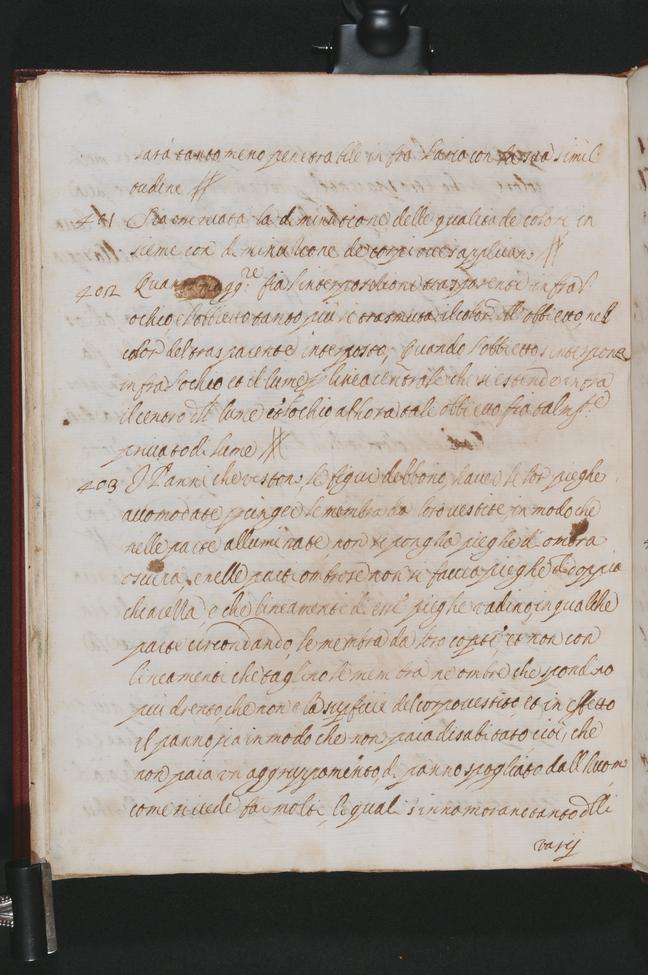 sarà tanto meno penetrabile infra l'aria con sua simil
tudine //
401 Sia osservata la diminutione delle qualità de colori in
sieme con diminuicone de corpi ove s'applicano //
402 Quanto magg.re fia l'interpositione trasparente infra l'
ochio e l'obbietto tanto più si trasmuta il color dell'obbietto, nel
color del trasparente interposto, Quando l'obbietto s'interpone
infra l'ochio et il lume p linea centrale che si estende infra
il centro del lume et l'ochio alhora tale obbietto fia
privato di lume //
403 I Panni che veston le figure debbono haver le lor pieghe
accomodate à cinger le membra da loro vestite, in modo che
nelle parte alluminate non si ponga pieghe d'ombra
oscura, e nelle parte ombrose non si faccia pieghe di toppia
chiarezza, e che lineamenti di esse pieghe vadino in qualche
parte circondando le membra da loro coperte, et non con
lineamenti che taglino le membra ne ombre che sfondino
piu drento, che non è la superficie del corpo vestito, et in effetto
il panno sia in modo che non paia disabitato cioè, che
non paia un aggruppamento di panno spogliato dall'huomo
come si vede fa molti, li quali s'innamorano tanto delli
varij